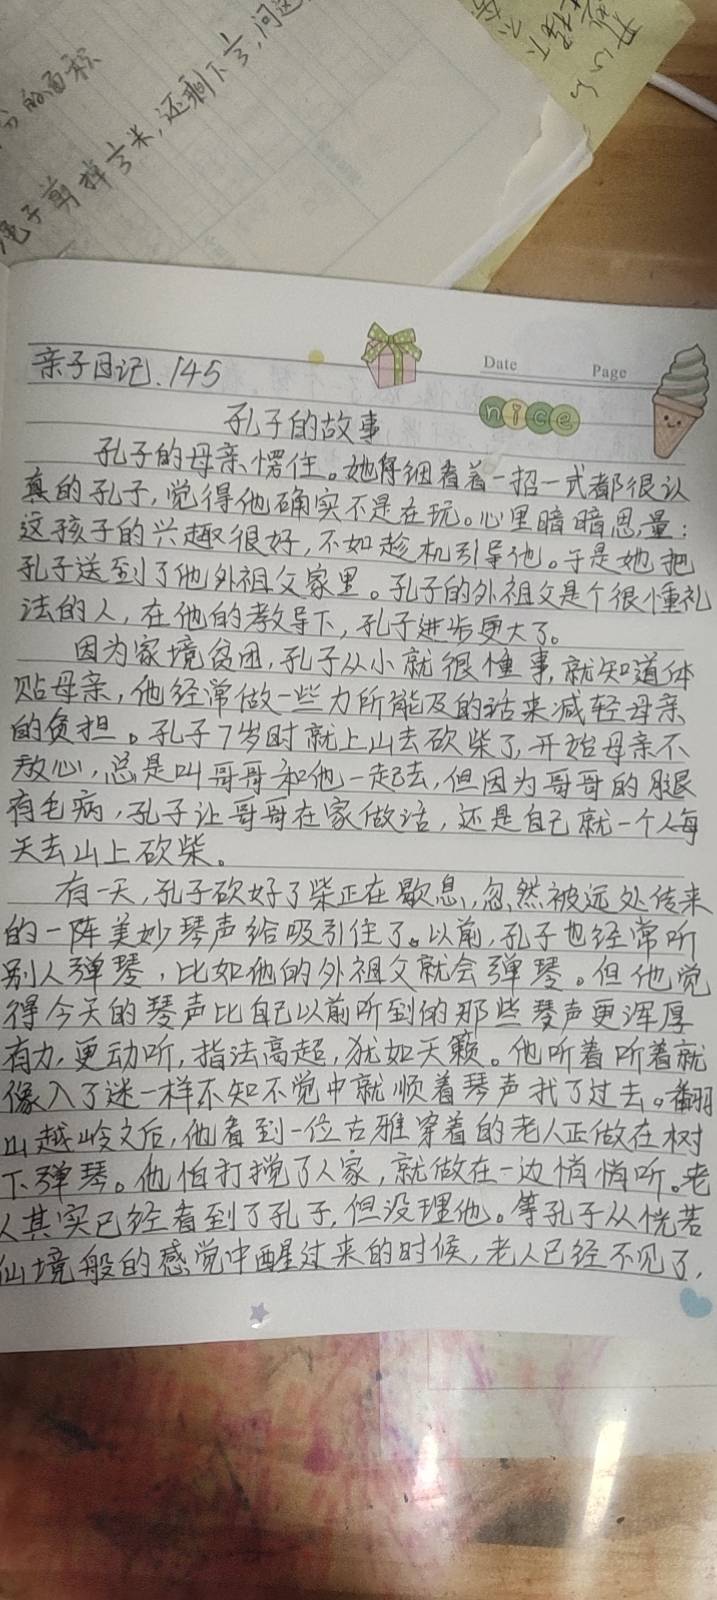 的面积
绳子剪掉⅓米,还剩下⅓,问这
亲子日记.145
Date
Page
nice
孔子的故事
孔子的母亲愣住。她仔细看着一招一式都很认
真的孔子,觉得他确实不是在玩。心里暗暗思量:
这孩子的兴趣很好,不如趁机引导他。于是她把
孔子送到了他外祖父家里。孔子的外祖父是个很懂礼
法的人,在他的教导下,孔子进步更大了。
因为家境贫困,孔子从小就很懂事,就知道体
贴母亲,他经常做一些力所能及的活来减轻母亲
的负担。孔子7岁时就上山去砍柴了,开始母亲不
放心,总是叫哥哥和他一起去,但因为哥哥的腿
有毛病,孔子让哥哥在家做活,还是自己就一个人每
天去山上砍柴。
有一天,孔子砍好了柴正在歇息,忽然被远处传来
的一阵美妙琴声给吸引住了。以前,孔子也经常听
别人弹琴,比如他的外祖父就会弹琴。但他觉
得今天的琴声比自己以前听到的那些琴声更浑厚
有力,更动听,指法高超,犹如天籁。他听着听着就
像入了迷一样不知不觉中就顺着琴声找了过去。翻
山越岭之后,他看到一位古雅穿着的老人正做在树
下弹琴。他怕打搅了人家,就做在一边悄悄听。老
人其实已经看到了孔子,但没理他。等孔子从恍若
仙境般的感觉中醒过来的时候,老人已经不见了,